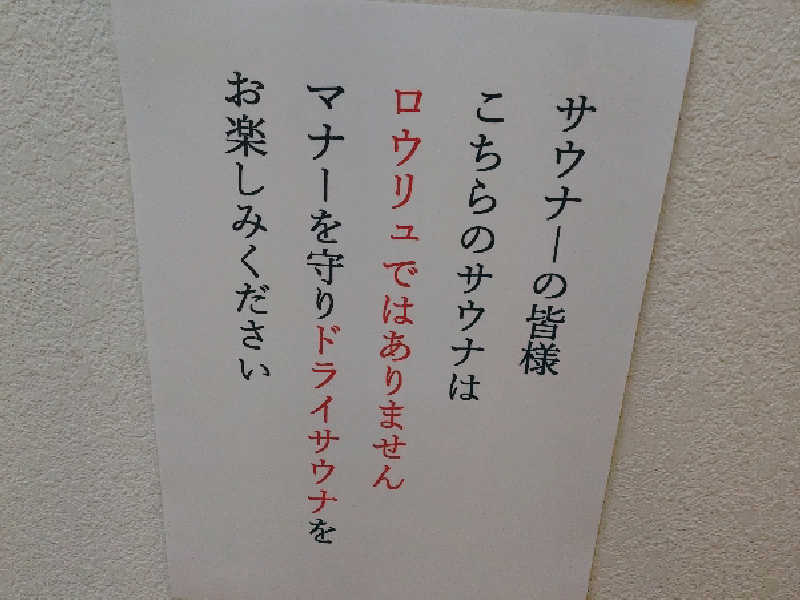 サウナーの皆様
こちらのサウナは
ロウリュではありません
マナーを守りドライサウナを
お楽しみください